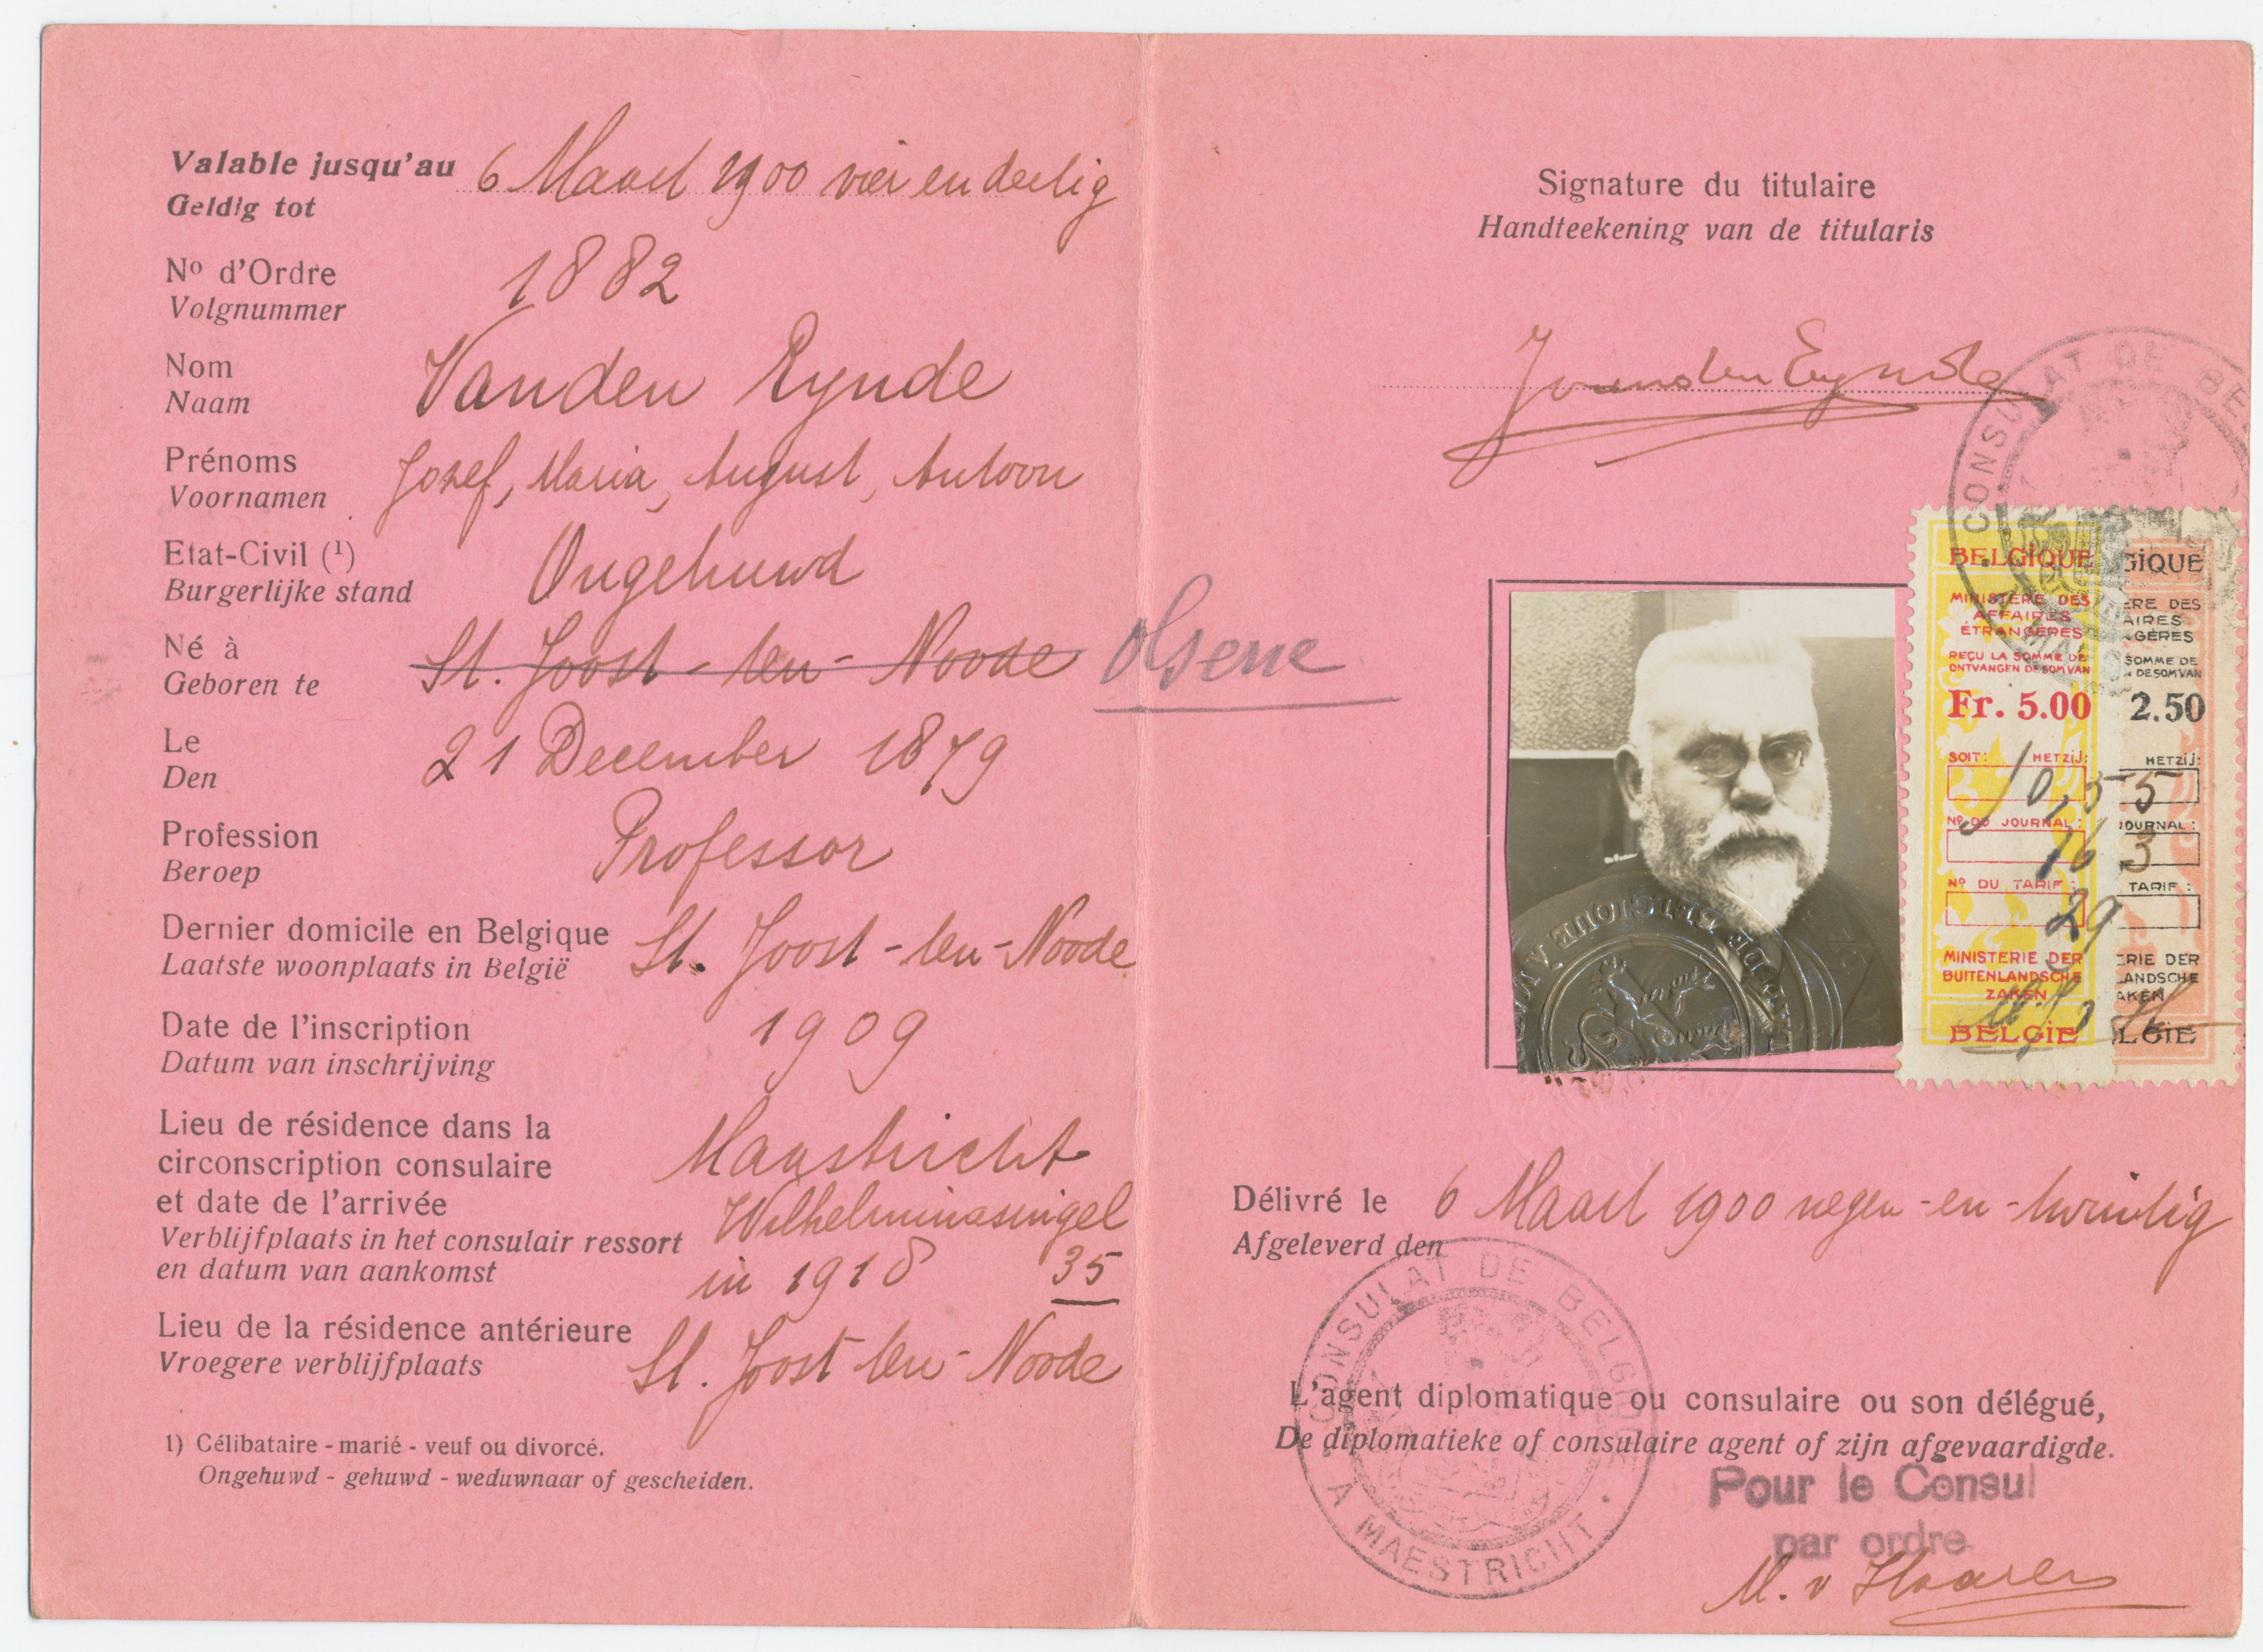 Valable jusqu'au 6 Maart 1900 vier en dertig
Geldig tot
Nº d'Ordre 1882
Volgnummer
Nom Vanden Eynde
Naam
Prénoms Jozef, Maria, August, Antoon
Voornamen
Etat-Civil (1) Ongehuwd
Burgerlijke stand
Né à St. Joost-ten-Noode Olsene
Geboren te
Le 21 December 1879
Den
Profession Professor
Beroep
Dernier domicile en Belgique St. Joost-ten-Noode
Laatste woonplaats in België
Date de l'inscription 1909
Datum van inschrijving
Lieu de résidence dans la
circonscription consulaire Maastricht
et date de l'arrivée Wilhelminasingel
Verblijfplaats in het consulair ressort 35
en datum van aankomst in 1918
Lieu de la résidence antérieure St. Joost-ten-Noode
Vroegere verblijfplaats
1) Célibataire - marié - veuf ou divorcé.
Ongehuwd - gehuwd - weduwnaar of gescheiden.
Signature du titulaire
Handteekening van de titularis
Eynde
CONSULAT DE
BELGIQUE
MINISTÈRE DES
AFFAIRES
ÉTRANGÈRES
REÇU LA SOMME DE
ONTVANGEN DE SOM VAN
Fr. 5.00
SOIT: HETZIJ:
Nº DU JOURNAL:
Nº DU TARIF:
29
MINISTERIE DER
BUITENLANDSCHE
ZAKEN
BELGIE
GIQUE
ÈRE DES
AIRES
GÈRES
SOMME DE
DE SOM VAN
2.50
HETZIJ:
JOURNAL:
TARIF:
ERIE DER
ANDSCHE
AKEN
LGIE
Délivré le 6 Maart 1900 negen-en-twintig
Afgeleverd den
CONSULAT DE BELGIQUE
A MAESTRICHT
L'agent diplomatique ou consulaire ou son délégué,
De diplomatieke of consulaire agent of zijn afgevaardigde.
Pour le Consul
par ordre
M. v Haaren